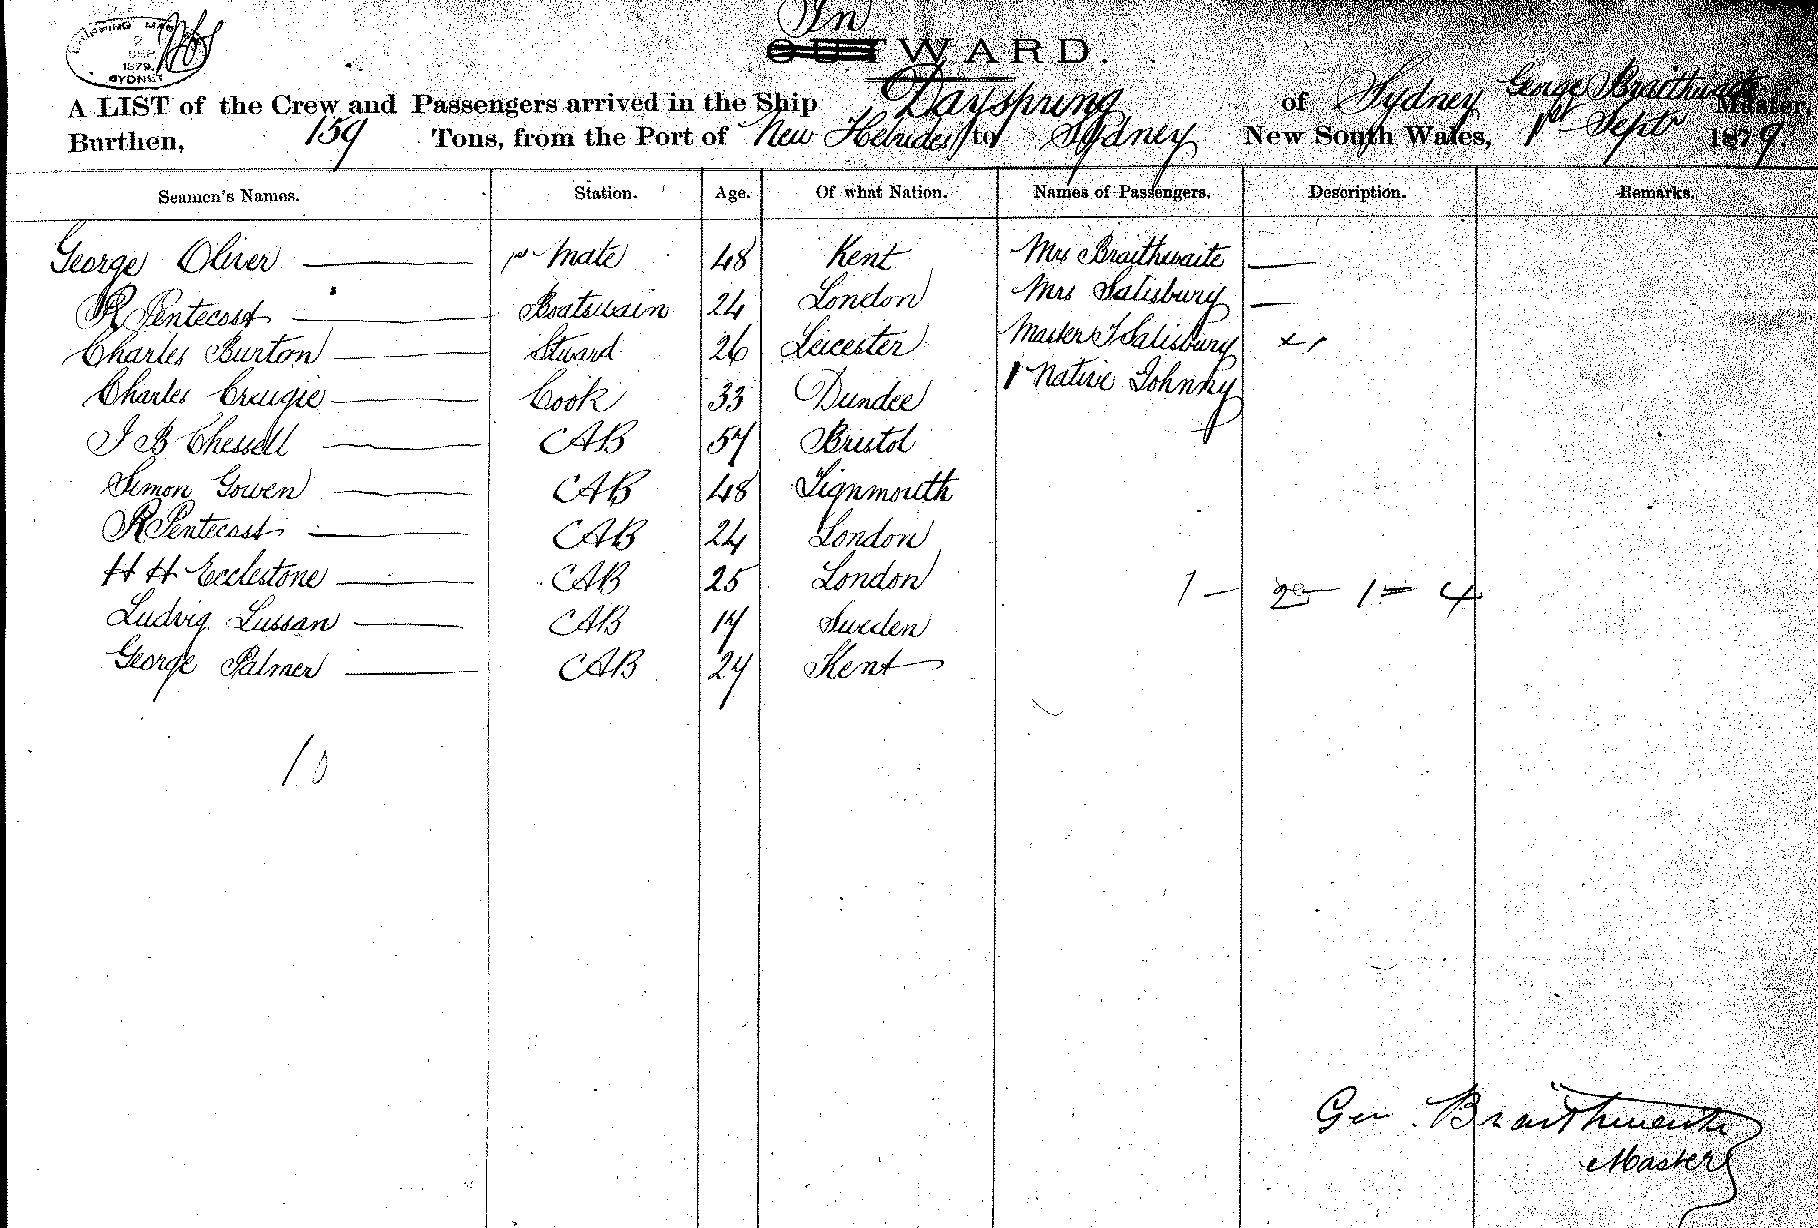 SHIPPING MAS
2
SEP
1879
SYDNEY
In
OUTWARD.
A LIST of the Crew and Passengers arrived in the Ship Dayspring of Sydney George Braithwaite Master,
Burthen, 159 Tons, from the Port of New Hebrides to Sydney New South Wales, 1st Sept 1879
Seamen's Names. Station. Age. Of what Nation. Names of Passengers. Description. Remarks.
George Oliver Mate 48 Kent Mrs Braithwaite —
R Pentecost Boatswain 24 London Mrs Salisbury —
Charles Burton Steward 26 Leicester Master Salisbury
Charles Craugie Cook 33 Dundee 1 Native Johnny
J B Chessell AB 57 Bristol
Simon Gowen AB 48 Tignmouth
R Pentecost AB 24 London
H H Ecclestone AB 25 London 1 — 2 — 1 = 4
Ludvig Lussan AB 17 Sweden
George Palmer AB 27 Kent
10
Geo Braithwaite
Master